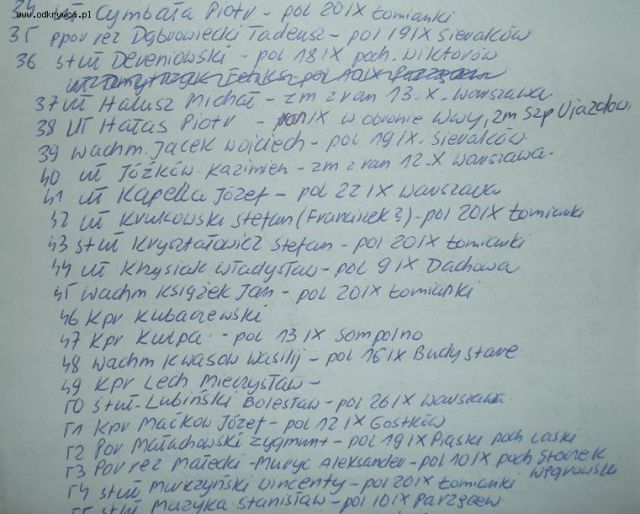 www.odkrywca.pl
34 uł Cymbała Piotr - pol 20 IX Łomianki
35 ppor rez Dąbrowiecki Tadeusz - pol 19 IX Sieraków
36 st uł Dereniowski - pol 18 IX poch. Wiktorów
37 uł Hałusz Michał - zm z ran 13. X. Warszawa
38 uł Hałas Piotr - IX w obronie Wwy, zm Szp Ujazdow.
39 Wachm. Jacek Wojciech - pol 19 IX. Sieraków
40 uł Jóźków. Kazimierz - zm z ran 12. X Warszawa.
41 uł Kapella Józef - pol 22 IX Warszawa
42 uł Krukowski Stefan (Franciszek?) - pol 20 IX Łomianki
43 st uł Kryształowicz Stefan - pol 20 IX Łomianki
44 uł Krysiak Władysław - pol 9 IX Dachowa
45 Wachm Książek Jan - pol 20 IX Łomianki
46 Kpr Kubaczewski
47 Kpr Kulpa - pol 13 IX Sompolno
48 Wachm Kwasow Wasilij - pol 16 IX Budy Stare
49 Kpr Lech Mieczysław -
50 st uł. Lubiński Bolesław - pol 26 IX Warszawa.
51 Kpr Maćków Józef - pol 12 IX Gostków
52 Por Małachowski Zygmunt - pol 19 IX Piaski poch Laski
53 Por rez Małecki - Muryc Aleksander - pol 10 IX poch
Węgrowski
54 st uł Murczyński Wincenty - pol 20 IX Łomianki
55 st uł Muzyka Stanisław - pol 10 IX